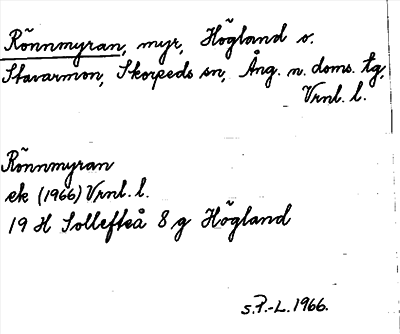 Rönnmyran, myr, Högland o.
Stavarmon, Skorpeds sn, Ång. n. doms. tg,
Vrnl. l.
Rönnmyran
ek (1966) Vrnl. l.
19 H Sollefteå 8 g Högland
s.P.-L. 1966.